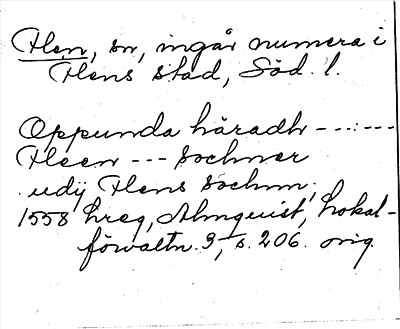 Flen, sn, ingår numera i
Flens stad, Söd. l.
Oppunda häradh ---:---
Fleen --- Sochner
udij Flens Sochnn;
1558 hreg, Almquist, Lokal-
förvaltn. 3, s. 206. orig.